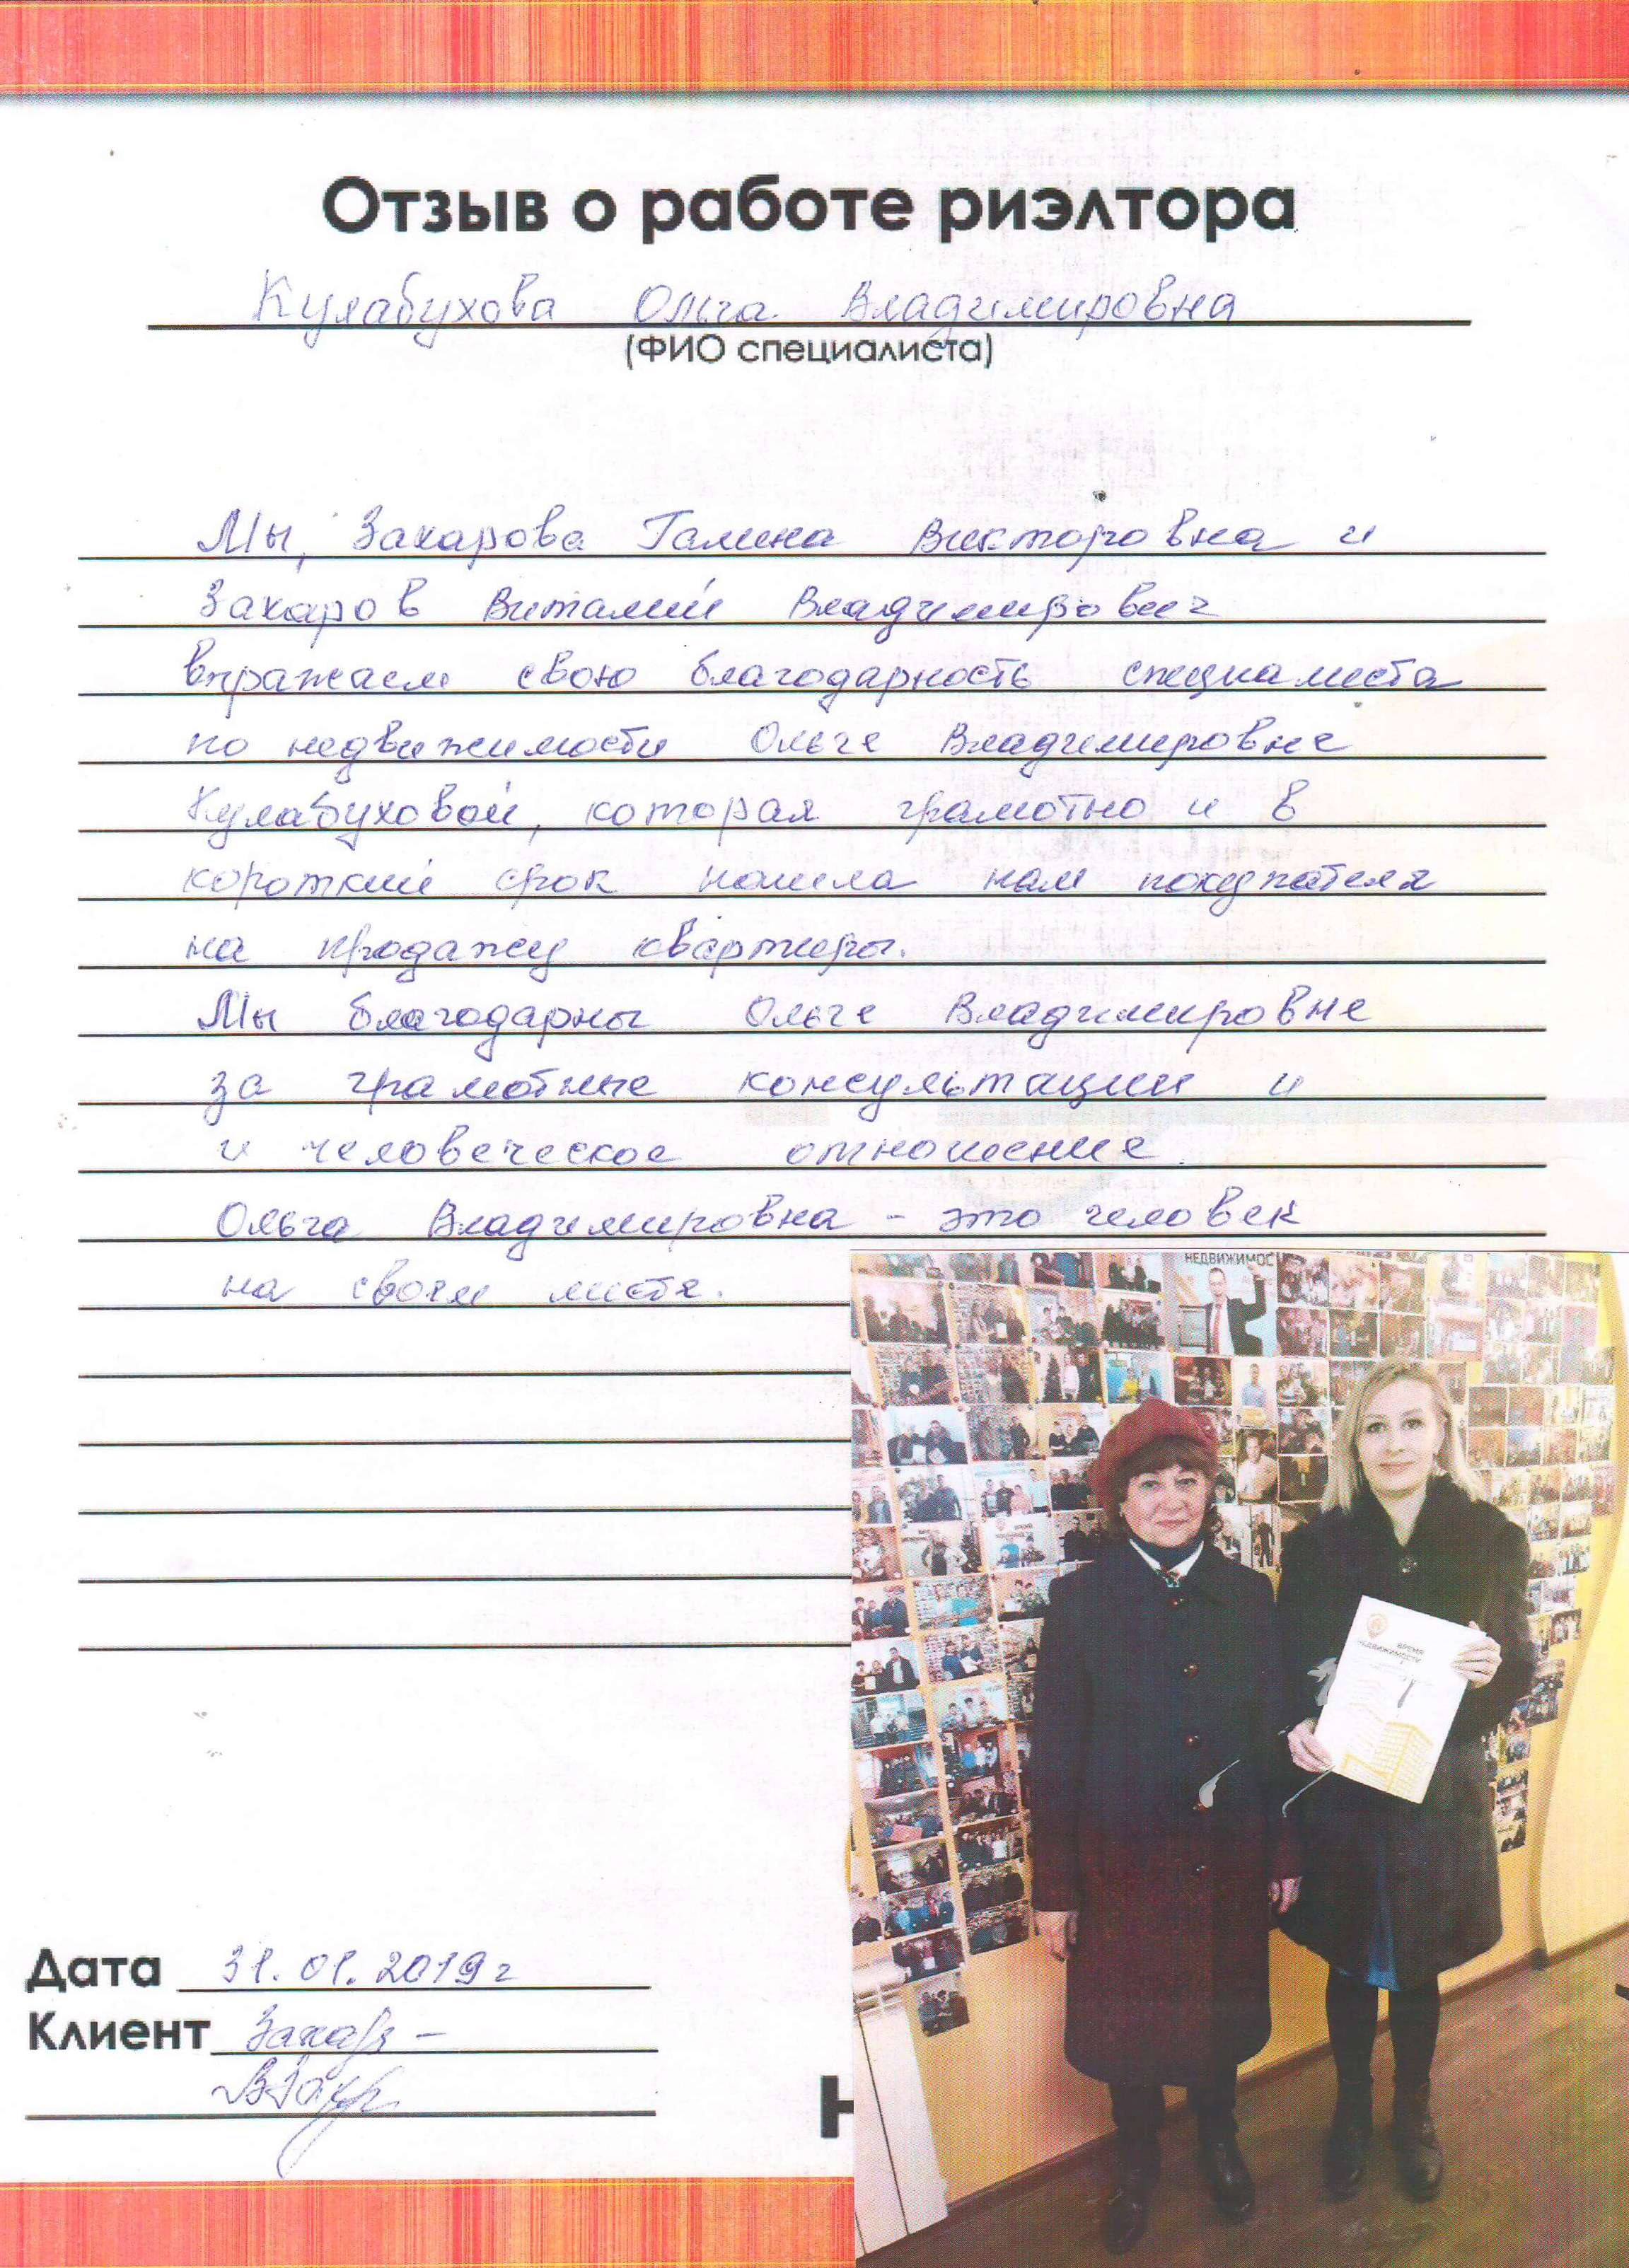 Отзыв о работе риэлтора
Кулабухова Ольга Владимировна
(ФИО специалиста)
Мы, Захарова Галина Викторовна и
Захаров Виталий Владимирович
выражаем свою благодарность специалиста
по недвижимости Ольге Владимировне
Кулабуховой, которая грамотно и в
короткий срок нашла нам покупателя
на продажу квартиры.
Мы благодарны Ольге Владимировне
за грамотные консультации и
и человеческое отношение.
Ольга Владимировна - это человек
на своем месте.
НЕДВИЖИМОС
ВРЕМЯ
НЕДВИЖИМОСТИ
Дата 31.01.2019 г
Клиент Захар
Н